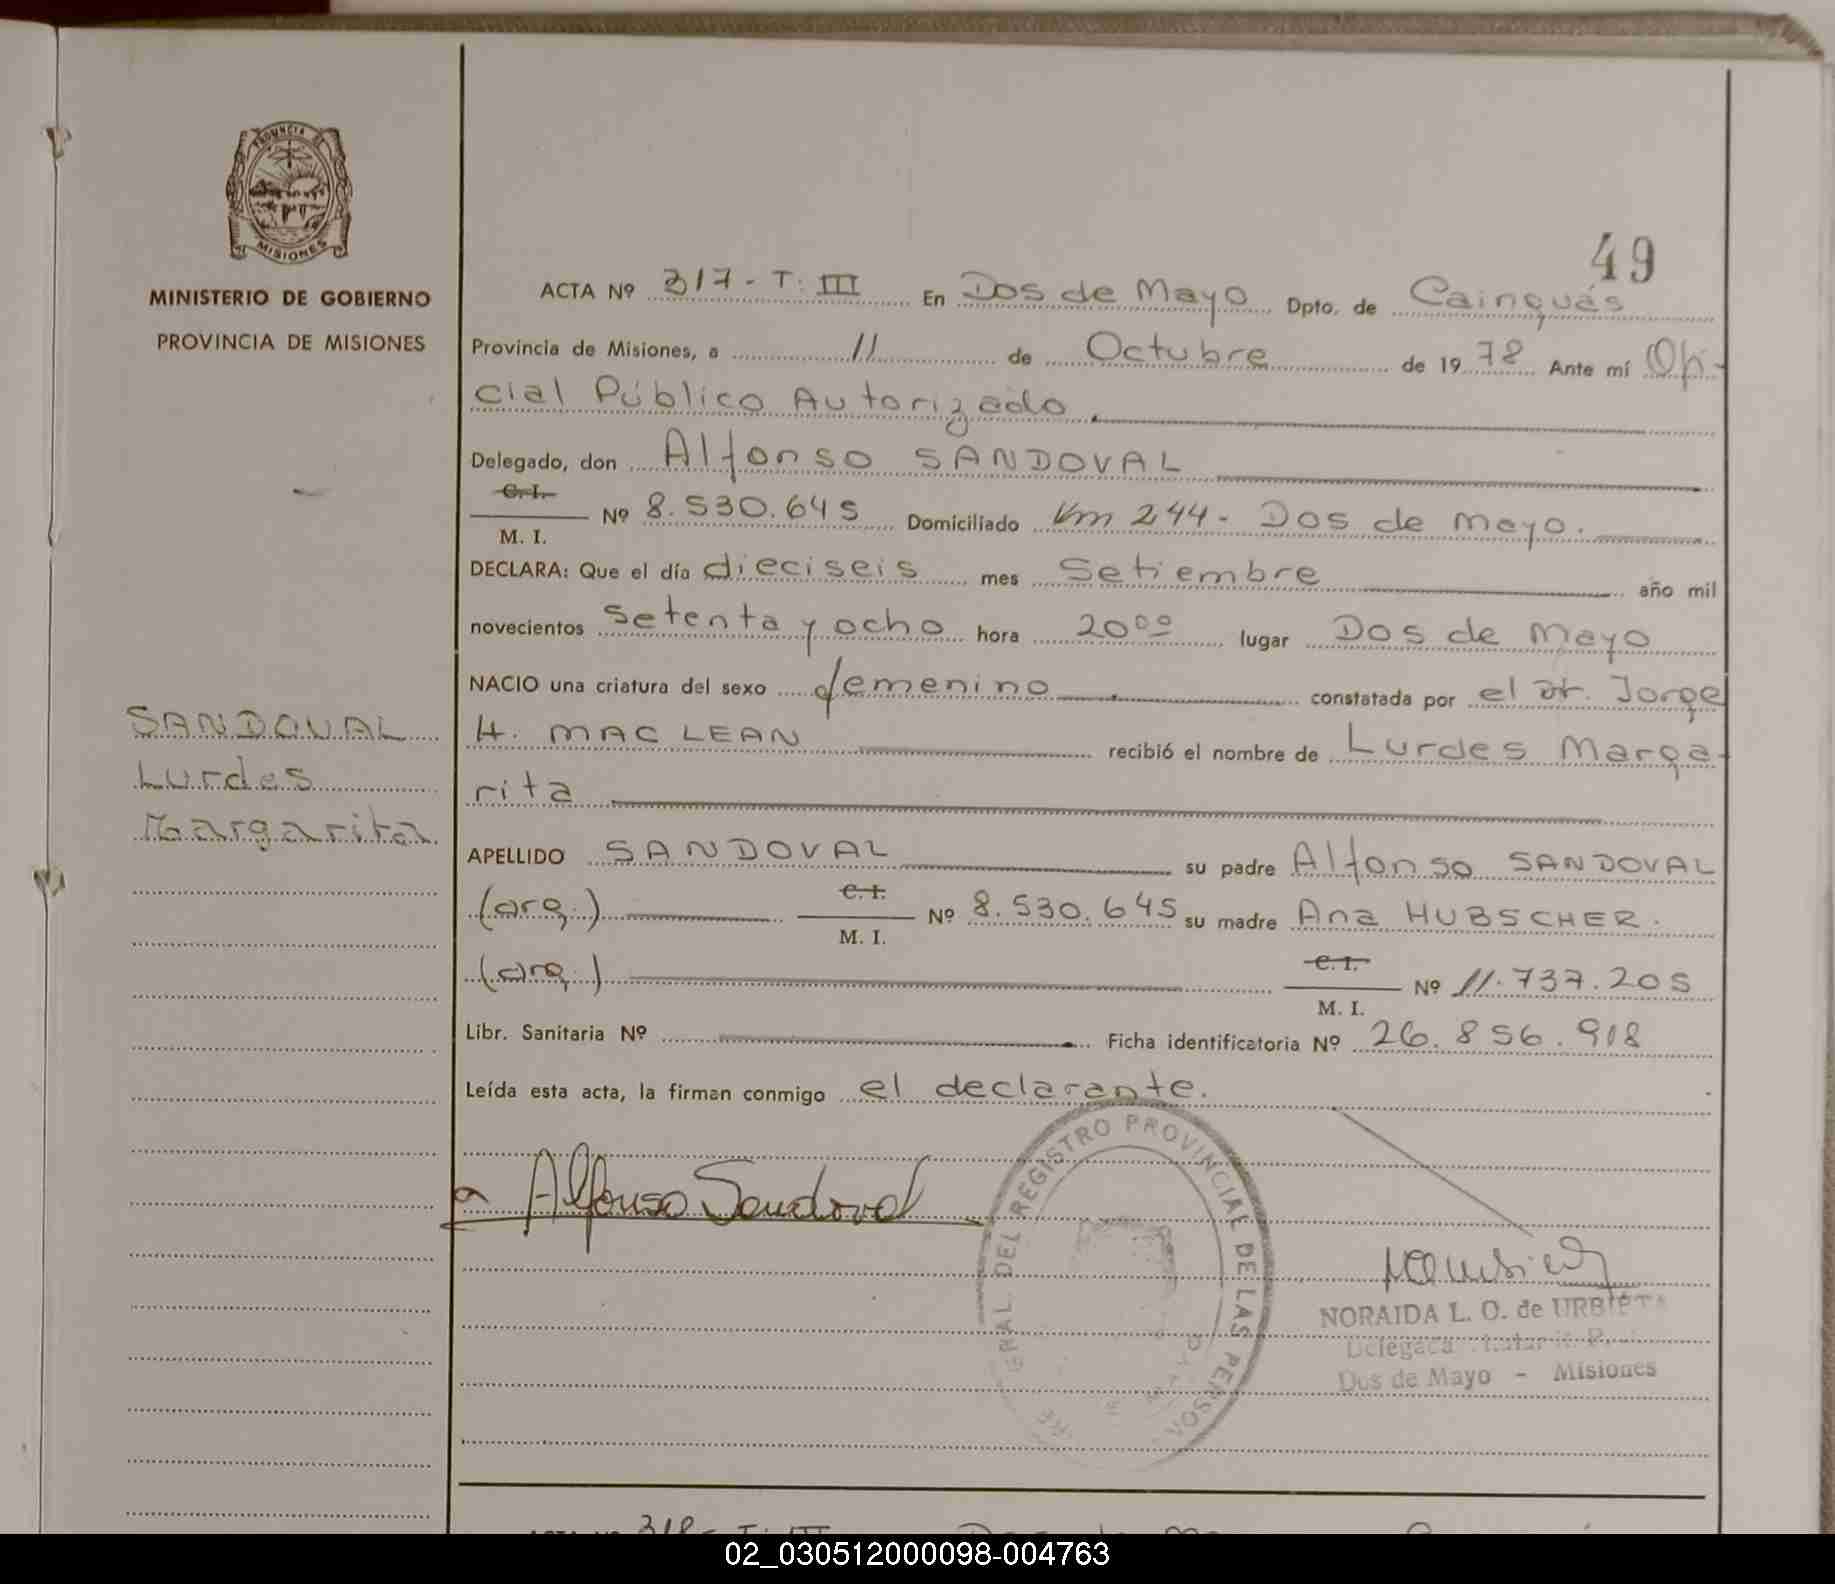 49
PROVINCIA DE
MISIONES
MINISTERIO DE GOBIERNO
PROVINCIA DE MISIONES
SANDOVAL
Lurdes
Margarita
ACTA Nº 317 - T: III En Dos de Mayo Dpto. de Cainguás
Provincia de Misiones, a 11 de Octubre de 1978 Ante mí Ofi-
cial Público Autorizado.
Delegado, don Alfonso SANDOVAL
C. I.
M. I. Nº 8.530.645 Domiciliado Km 244 - Dos de Mayo.
DECLARA: Que el día dieciseis mes Setiembre año mil
novecientos setenta y ocho hora 20 oo lugar Dos de Mayo
NACIO una criatura del sexo femenino constatada por el Dr. Jorge
H. MAC LEAN recibió el nombre de Lurdes Marga-
rita
APELLIDO SANDOVAL su padre Alfonso SANDOVAL
(arg.) C. I. M. I. Nº 8.530.645 su madre Ana HUBSCHER.
(arg.) C. I. M. I. Nº 11.737.205
Libr. Sanitaria Nº Ficha identificatoria Nº 26.856.918
Leída esta acta, la firman conmigo el declarante.
Alfonso Sandoval
GRAL. DEL REGISTRO PROVINCIAL DE LAS PERSON
NORAIDA L. O. de URBIETA
Delegada
Dos de Mayo - Misiones
ACTA Nº 318 - T: III
02_030512000098-004763